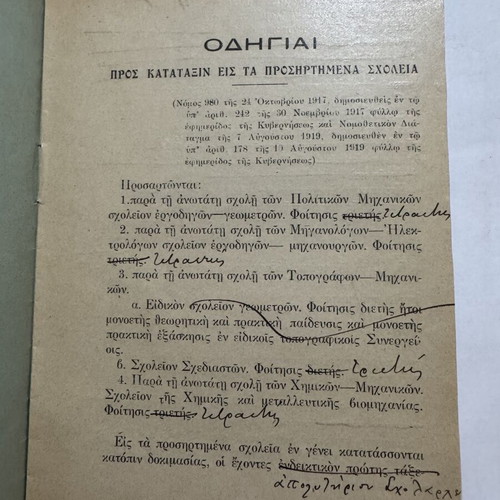 ΟΔΗΓΙΑΙ
ΠΡΟΣ ΚΑΤΑΤΑΞΙΝ ΕΙΣ ΤΑ ΠΡΟΣΗΡΤΗΜΕΝΑ ΣΧΟΛΕΙΑ
(Νόμος 980 τῆς 24 Ὀκτωβρίου 1917, δημοσιευθεὶς ἐν τῷ
ὑπ' ἀριθ. 242 τῆς 30 Νοεμβρίου 1917 φύλλῳ τῆς
ἐφημερίδος τῆς Κυβερνήσεως καὶ Νομοθετικὸν Διά-
ταγμα τῆς 7 Αὐγούστου 1919, δημοσιευθὲν ἐν τῷ
ὑπ' ἀριθ. 178 τῆς 10 Αὐγούστου 1919 φύλλῳ τῆς
ἐφημερίδος τῆς Κυβερνήσεως)
Προσαρτῶνται:
1. παρὰ τῇ ἀνωτάτῃ σχολῇ τῶν Πολιτικῶν Μηχανικῶν
σχολεῖον ἐργοδηγῶν—γεωμετρῶν. Φοίτησις τριετής. Τετραετής
2. παρὰ τῇ ἀνωτάτῃ σχολῇ τῶν Μηχανολόγων—Ἠλεκ-
τρολόγων σχολεῖον ἐργοδηγῶν—μηχανουργῶν. Φοίτησις
τριετής. Τετραετής
3. παρὰ τῇ ἀνωτάτῃ σχολῇ τῶν Τοπογράφων—Μηχανι-
κῶν.
α. Εἰδικὸν σχολεῖον γεωμετρῶν. Φοίτησις διετὴς ἤτοι
μονοετὴς θεωρητικὴ καὶ πρακτικὴ παίδευσις καὶ μονοετὴς
πρακτικὴ ἐξάσκησις ἐν εἰδικοῖς τοπογραφικοῖς Συνεργεί-
οις.
6. Σχολεῖον Σχεδιαστῶν. Φοίτησις διετής. Τριετής
4. Παρὰ τῇ ἀνωτάτῃ σχολῇ τῶν Χημικῶν—Μηχανικῶν.
Σχολεῖον τῆς Χημικῆς καὶ μεταλλευτικῆς βιομηχανίας.
Φοίτησις τριετής. Τετραετής
Εἰς τὰ προσηρτημένα σχολεῖα ἐν γένει κατατάσσονται
κατόπιν δοκιμασίας, οἱ ἔχοντες ἐνδεικτικὸν πρώτης τάξε-
ἀπολυτήριον